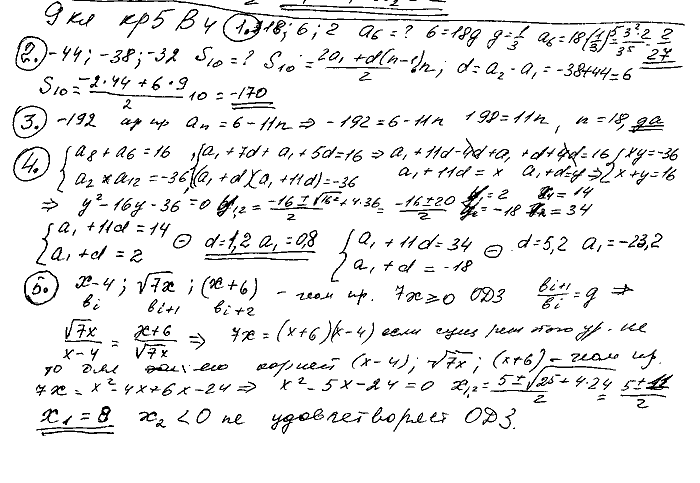 9 кл кр 5 В 4 1. 18; 6; 2 a₆ = ? 6 = 18g g = 1/3 a₆ = 18(1/3)⁵ = 3²·2/3⁵ = 2/27
2. -44; -38; -32 S₁₀ = ? S₁₀ = (2a₁ + d(n-1))/2 · n; d = a₂ - a₁ = -38+44 = 6
S₁₀ = (-2·44 + 6·9)/2 10 = -170
3. -192 ар пр aₙ = 6 - 11n ⇒ -192 = 6 - 11n 198 = 11n, n = 18, да
4. { a₈ + a₆ = 16, { a₁ + 7d + a₁ + 5d = 16 ⇒ a₁ + 11d - 4d + a₁ + d + 4d = 16 { xy = -36
a₂ × a₁₂ = -36, { (a₁ + d)(a₁ + 11d) = -36 a₁ + 11d = x a₁ + d = y ⇒ { x + y = 16
⇒ y² - 16y - 36 = 0 y₁,₂ = (-16 ± √16² + 4·36)/2 = (-16 ± 20)/2 = 2 = 14
= -18 = 34
{ a₁ + 11d = 14 ⊖ d = 1,2 a₁ = 0,8 { a₁ + 11d = 34 ⊖ d = 5,2 a₁ = -23,2
a₁ + d = 2 a₁ + d = -18
5. x-4; √7x; (x+6) - геом пр. 7x ≥ 0 ОДЗ bᵢ₊₁/bᵢ = g ⇒
bᵢ bᵢ₊₁ bᵢ₊₂
√7x/(x-4) = (x+6)/√7x ⇒ 7x = (x+6)(x-4) если сущ реш этого ур. не
то для его корней (x-4); √7x; (x+6) - геом пр.
7x = x² - 4x + 6x - 24 ⇒ x² - 5x - 24 = 0 x₁,₂ = (5 ± √25 + 4·24)/2 = (5 ± 11)/2
x₁ = 8 x₂ < 0 не удовлетворяет ОДЗ.